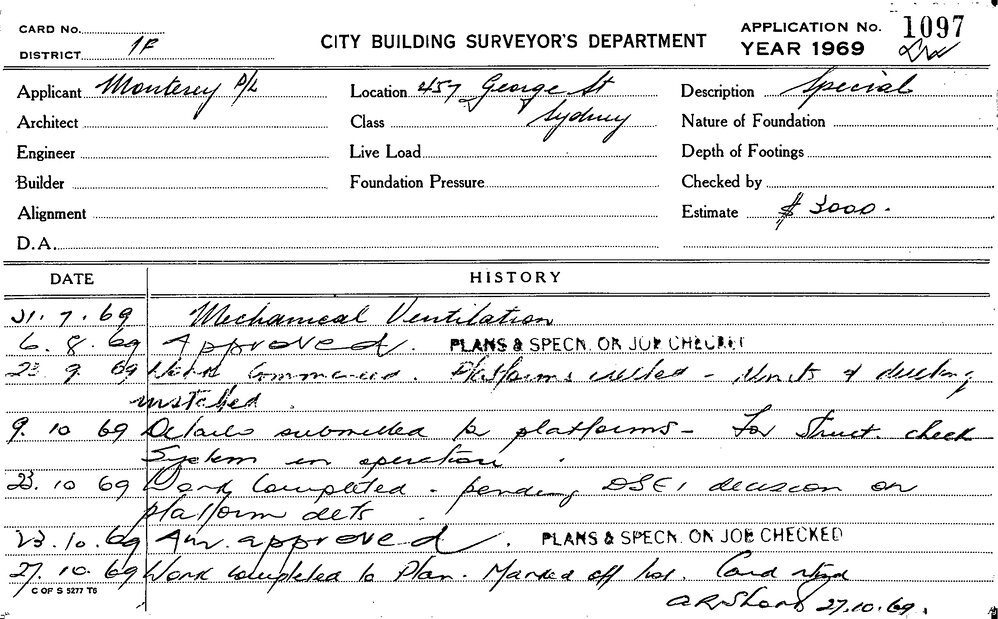 CARD No.
APPLICATION No. 1097
DISTRICT 1F
CITY BUILDING SURVEYOR'S DEPARTMENT
YEAR 1969
Applicant Monterey P/L
Location 457 George St
Description Special
Architect
Class Sydney
Nature of Foundation
Engineer
Live Load
Depth of Footings
Builder
Foundation Pressure
Checked by
Alignment
Estimate $ 3000.
D.A.
DATE HISTORY
31. 7. 69 Mechanical Ventilation
6. 8. 69 Approved. PLANS & SPECN. ON JOB CHECKED
23 9 69 Work Commenced. Platforms erected - Units & ducting
installed.
9. 10 69 Details submitted for platforms - For Struct. check
System in operation.
23. 10 69 Work Completed - pending DSE1 decision on
platform dets.
23. 10. 69 Am. approved. PLANS & SPECN. ON JOB CHECKED
27. 10. 69 Work completed to Plan. Marked off list. Card
C OF S 5277 T6
27.10.69.